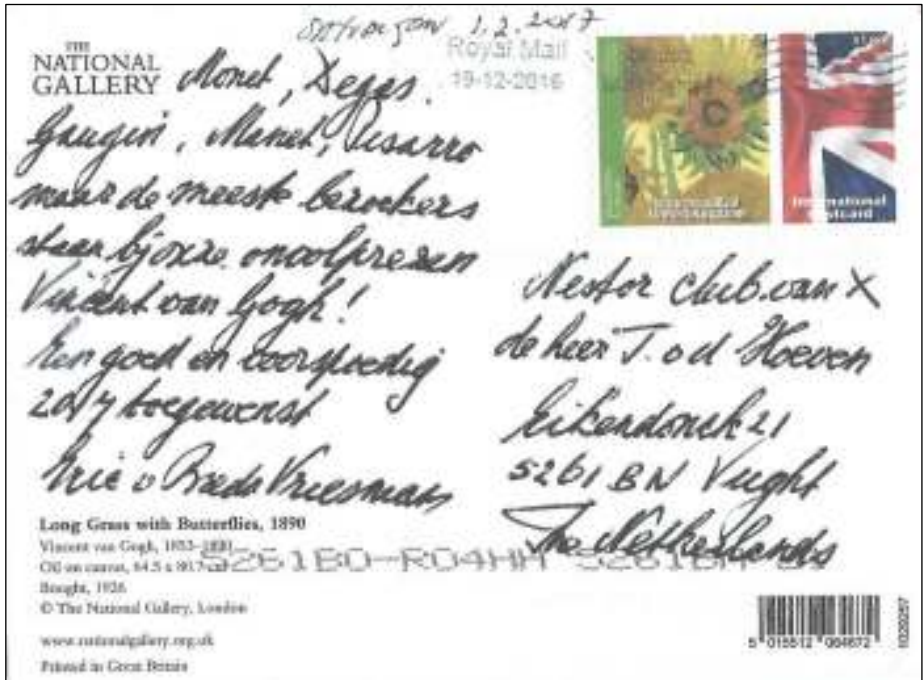 ontvangen 1.2.2017
Royal Mail
19-12-2016
THE
NATIONAL
GALLERY
Monet, Degas.
Gaugin, Manet, Pisarro
maar de meeste bezoekers
staan bij onze onvolprezen
Vincent van Gogh!
Een goed en voorspoedig
2017 toegewenst
Eric v Breda Vriesman
International
Postcard
Nestor club van X
de heer T. v d Hoeven
Eikendonck 21
5261 BN Vught
The Netherlands
Long Grass with Butterflies, 1890
Vincent van Gogh, 1853–1890
Oil on canvas, 64.5 x 80.7 cm
Bought, 1926
© The National Gallery, London
www.nationalgallery.org.uk
Printed in Great Britain
5 015512 064672
1029257